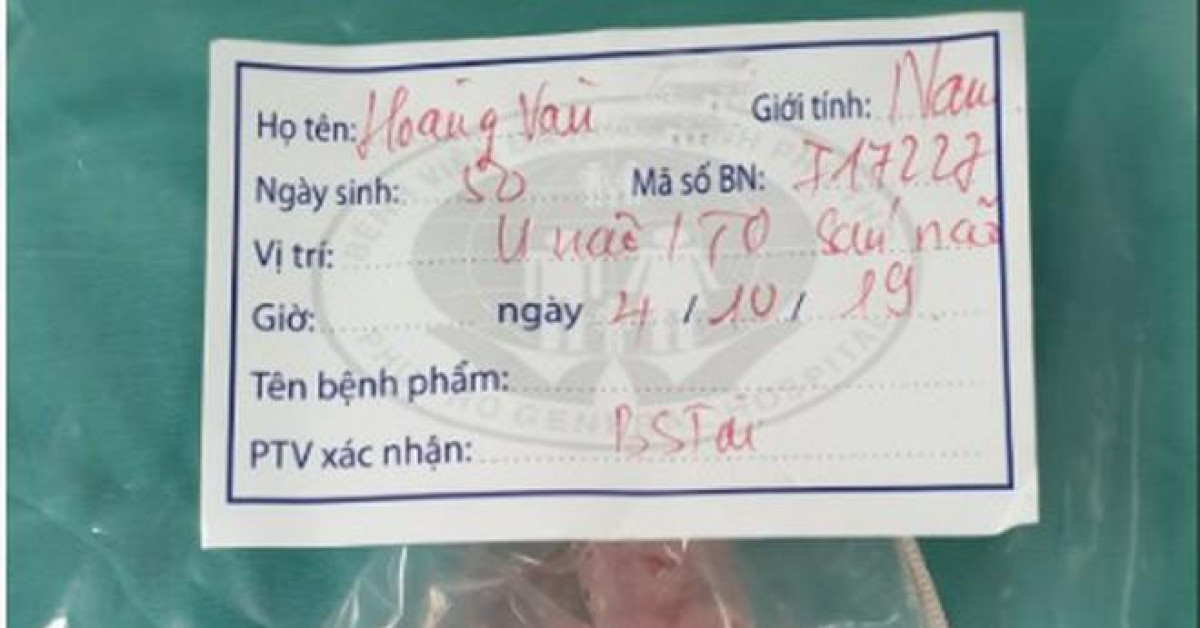 Họ tên: Hoàng Văn Giới tính: Nam
Ngày sinh: 50 Mã số BN: I17227
Vị trí: U não / TD sau não
Giờ: ngày 4 / 10 / 19
Tên bệnh phẩm:
PTV xác nhận: BS Tài